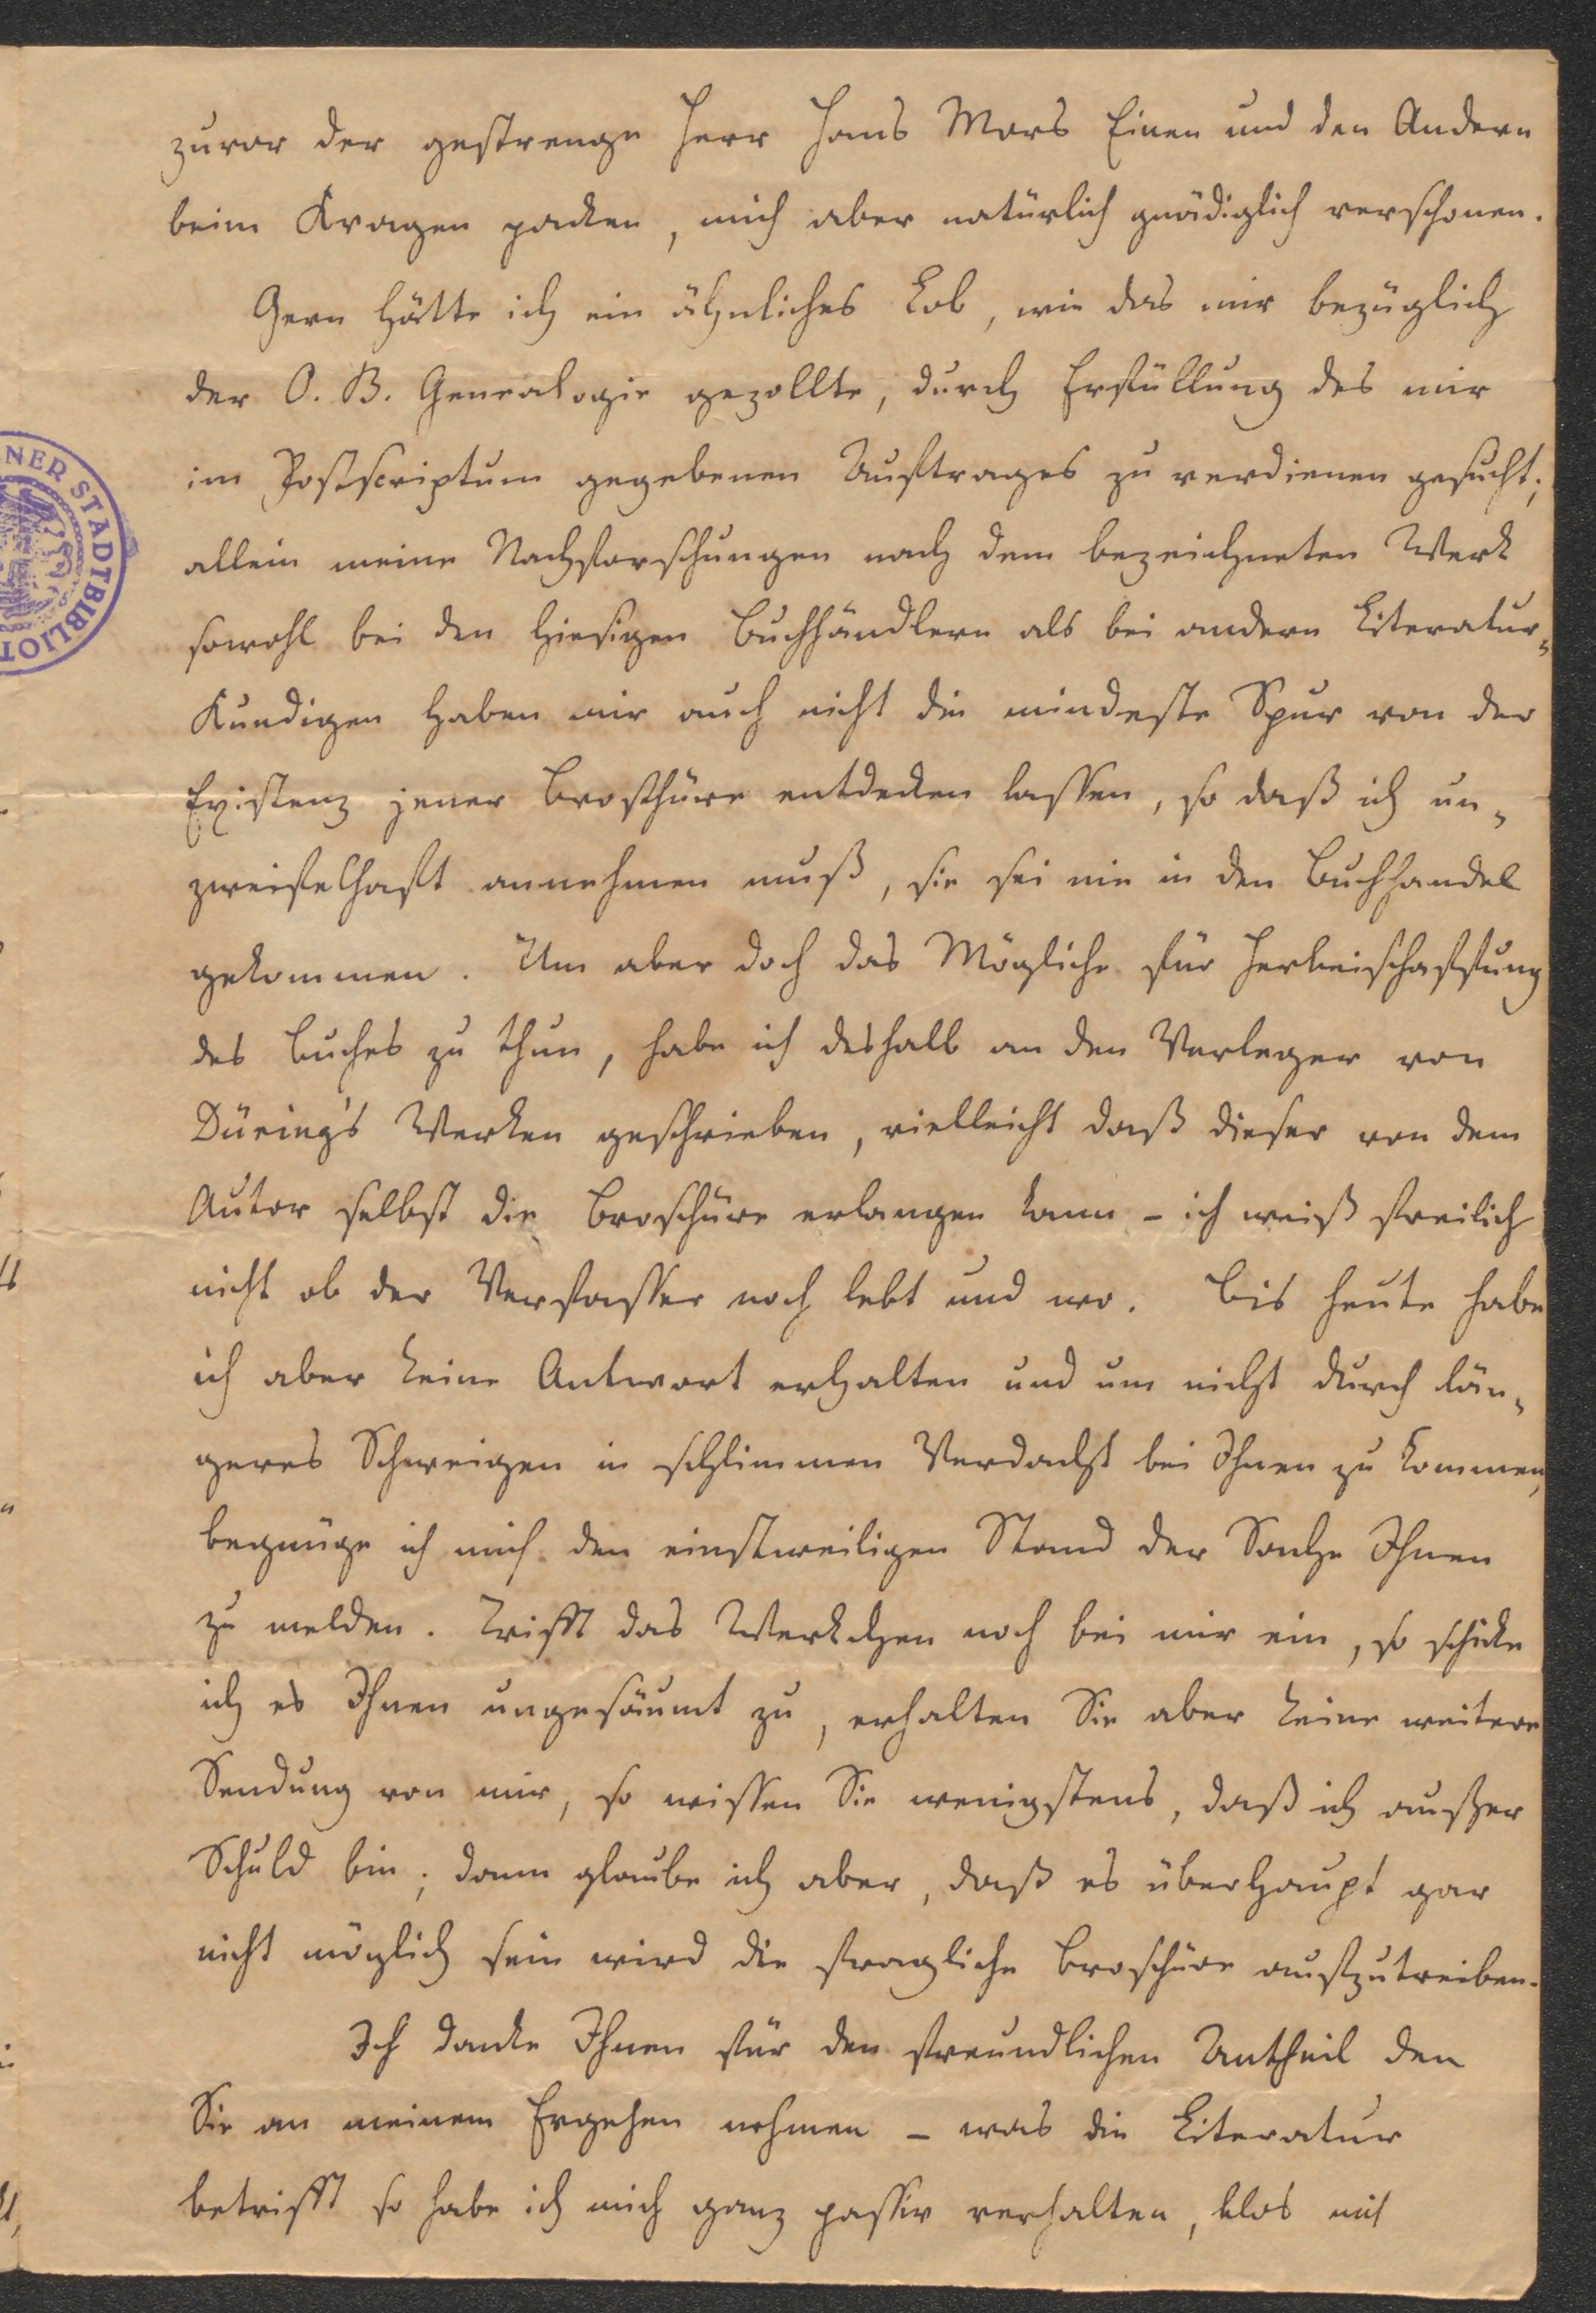 zuvor der gestrenge Herr Hans Mors Einen und den Andern
beim Kragen packen, mich aber natürlich gnädiglich verschonen.
Gern hätte ich ein ähnliches Lob, wie das mir bezüglich
der O. B. Genealogie gezollte, durch Erfüllung des mir
im Postscriptum gegebenen Auftrages zu verdienen gesucht;
allein meine Nachforschungen nach dem bezeichneten Werk
sowohl bei den hiesigen Buchhändlern als bei andern Literatur-
Kundigen haben mir auch nicht die mindeste Spur von der
Existenz jener Broschüre entdecken lassen, so daß ich un-
zweifelhaft annehmen muß, sie sei nie in den Buchhandel
gekommen. Um aber doch das Mögliche für Herbeischaffung
des Buches zu thun, habe ich deshalb an den Verleger von
Düring's Werken geschrieben, vielleicht daß dieser von dem
Autor selbst die Broschüre erlangen kann - ich weiß freilich
nicht ob der Verfasser noch lebt und wo. Bis heute habe
ich aber keine Antwort erhalten und um nicht durch län-
geres Schweigen in schlimmen Verdacht bei Ihnen zu kommen,
begnüge ich mich den einstweiligen Stand der Sache Ihnen
zu melden. Trifft das Werkchen noch bei mir ein, so schicke
ich es Ihnen ungesäumt zu, erhalten Sie aber keine weitere
Sendung von mir, so wissen Sie wenigstens, daß ich außer
Schuld bin; dann glaube ich aber, daß es überhaupt gar
nicht möglich sein wird die fragliche Broschüre aufzutreiben.
Ich danke Ihnen für den freundlichen Antheil den
Sie an meinem Ergehen nehmen - was die Literatur
betrifft so habe ich mich ganz passiv verhalten, blos mit
NER STADTBIBLIOT